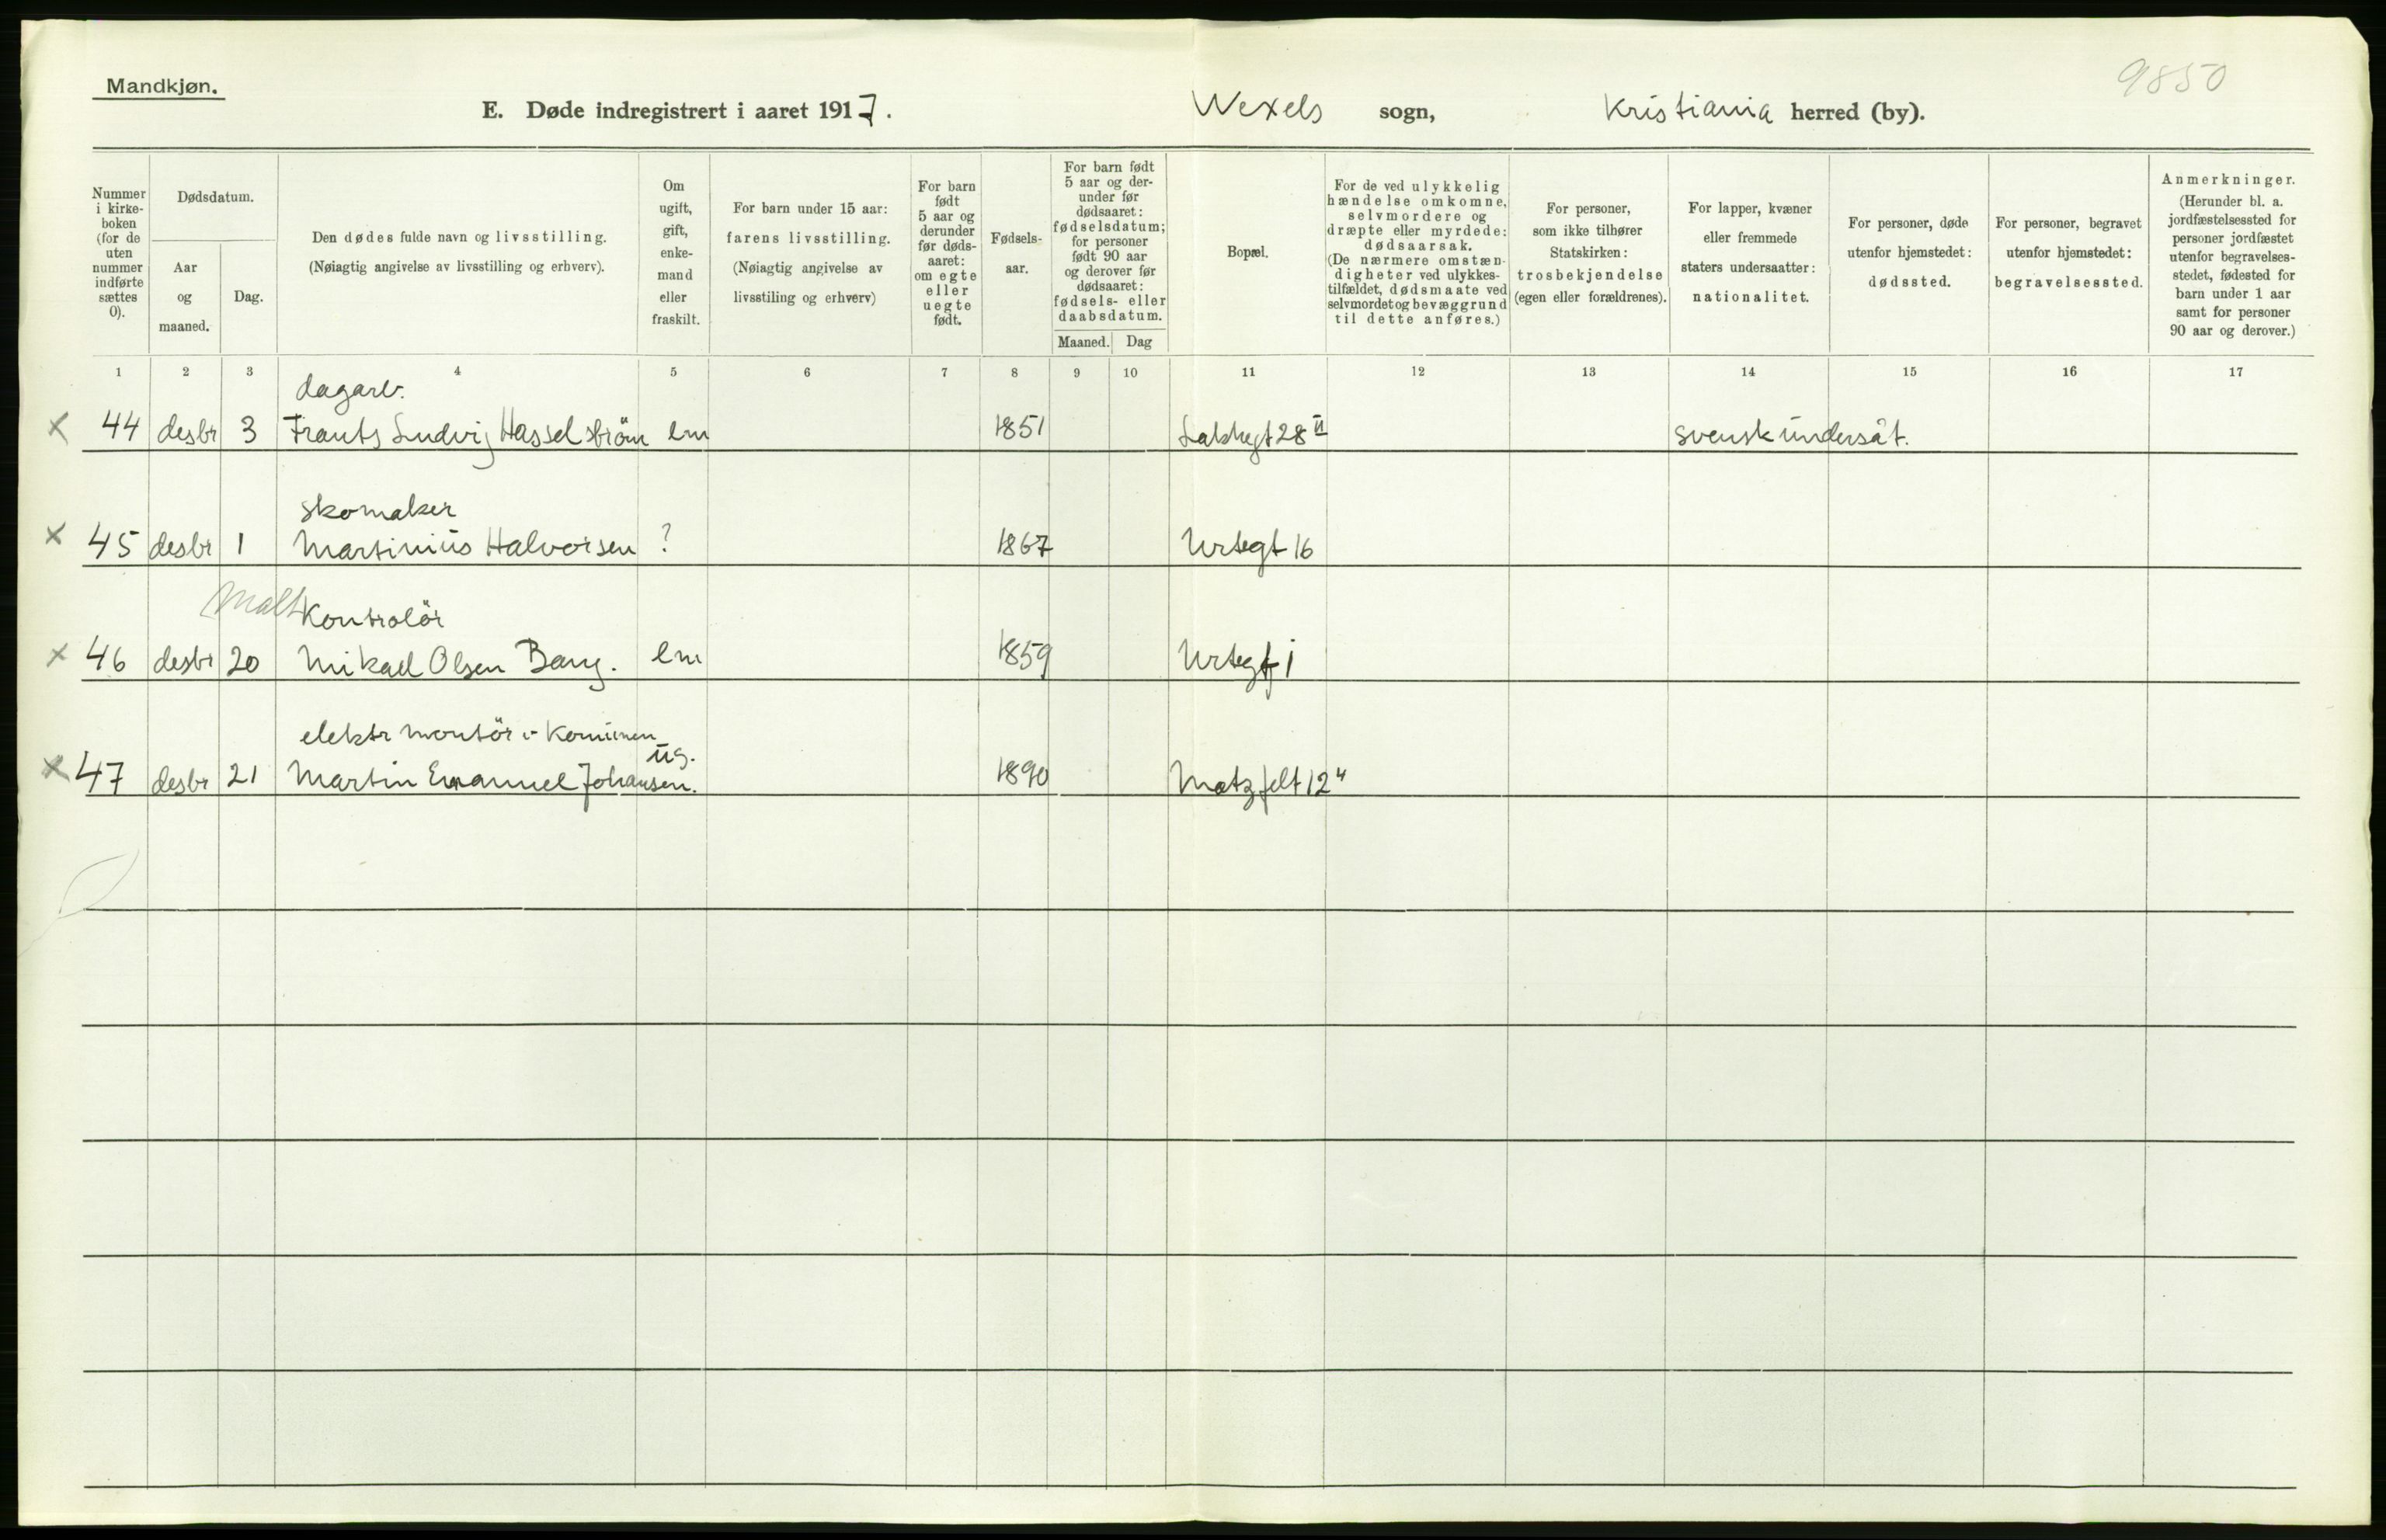 Mandkjøn.
9850
E. Døde indregistrert i aaret 1917.
Wexels sogn,
Kristiania herred (by).
Nummer i kirke-boken (for de uten nummer indførte sættes 0).
Dødsdatum.
Aar og maaned.
Dag.
Den dødes fulde navn og livsstilling.
(Nøiagtig angivelse av livsstilling og erhverv).
Om ugift, gift, enke-mand eller fraskilt.
For barn under 15 aar: farens livsstilling.
(Nøiagtig angivelse av livsstiling og erhverv)
For barn født 5 aar og derunder før døds-aaret: om egte eller uegte født.
Fødsels-aar.
For barn født 5 aar og der-under før dødsaaret: fødselsdatum; for personer født 90 aar og derover før dødsaaret: fødsels- eller daabsdatum.
Maaned. Dag
Bopæl.
For de ved ulykkelig hændelse omkomne, selvmordere og dræpte eller myrdede: dødsaarsak.
(De nærmere omstæn-digheter ved ulykkes-tilfældet, dødsmaate ved selvmordet og bevæggrund til dette anføres.)
For personer, som ikke tilhører Statskirken: trosbekjendelse (egen eller forældrenes).
For lapper, kvæner eller fremmede staters undersaatter: nationalitet.
For personer, døde utenfor hjemstedet: dødssted.
For personer, begravet utenfor hjemstedet: begravelsessted.
Anmerkninger.
(Herunder bl. a. jordfæstelsessted for personer jordfæstet utenfor begravelses-stedet, fødested for barn under 1 aar samt for personer 90 aar og derover.)
1 2 3 4 5 6 7 8 9 10 11 12 13 14 15 16 17
dagarb.
x 44 desbr 3 Frants Ludvig Hasselström em 1851 28 II svensk undersåt.
skomaker
x 45 desbr 1 Martinius Halvorsen ? 1867 Urtegt 16
Malt Kontrolör
x 46 desbr 20 Mikael Olsen Bang. em 1859 Urtegt 1
elektr montör v Komunen
ug.
x 47 desbr 21 Martin Emanuel Johansen. 1890 Motzfelt 12 "